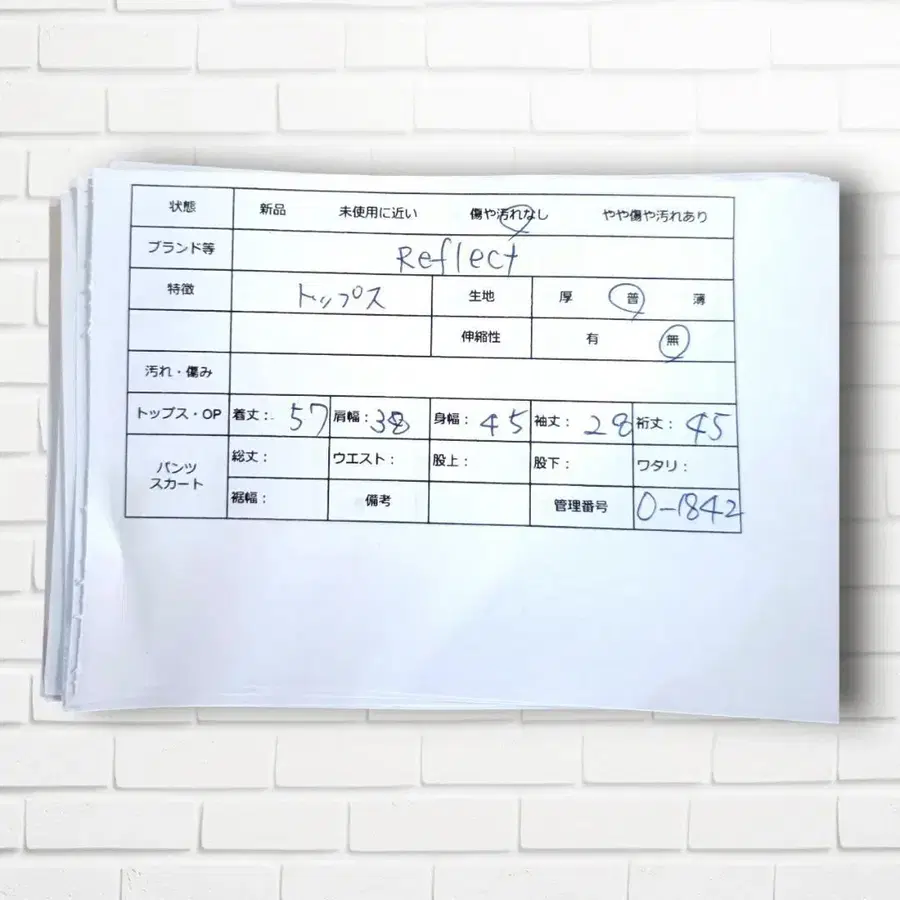 状態 新品 未使用に近い 傷や汚れなし やや傷や汚れあり
ブランド等 Reflect
特徴 トップス 生地 厚 普 薄
伸縮性 有 無
汚れ・傷み
トップス・OP 着丈: 57 肩幅: 38 身幅: 45 袖丈: 28 裄丈: 45
パンツ
スカート
総丈: ウエスト: 股上: 股下: ワタリ:
裾幅: 備考 管理番号 O-1842